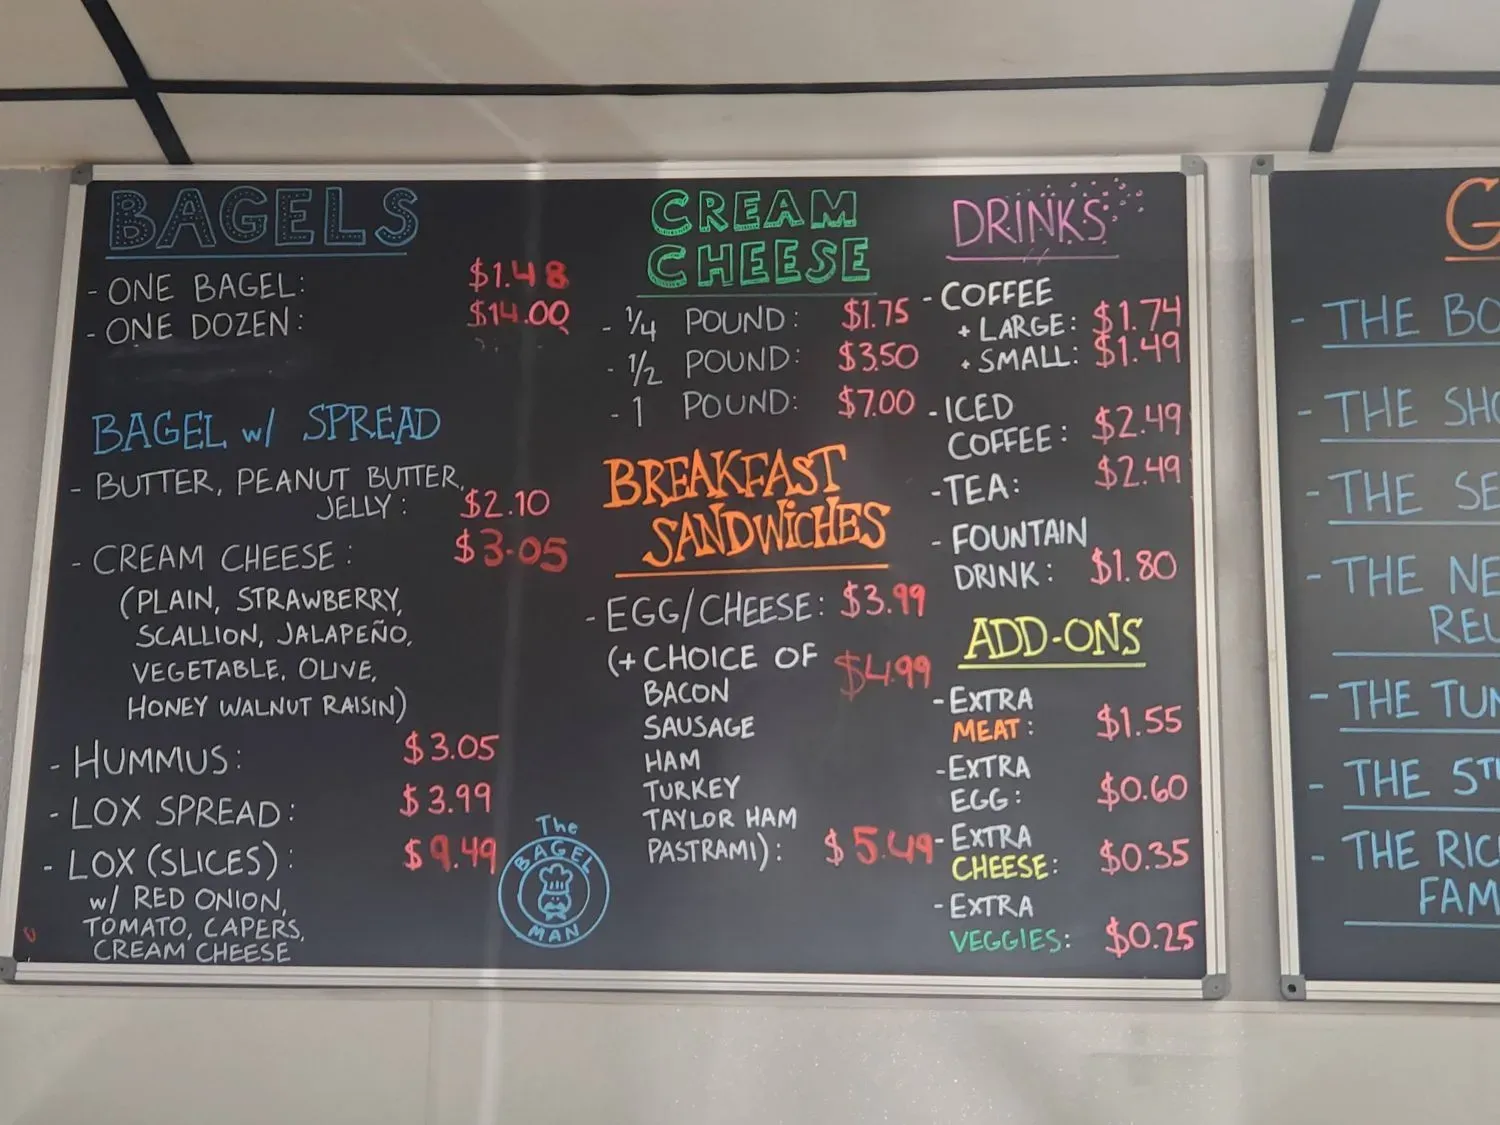 BAGELS
- ONE BAGEL: $1.48
- ONE DOZEN: $14.00
BAGEL w/ SPREAD
- BUTTER, PEANUT BUTTER,
JELLY: $2.10
- CREAM CHEESE: $3.05
(PLAIN, STRAWBERRY,
SCALLION, JALAPEÑO,
VEGETABLE, OLIVE,
HONEY WALNUT RAISIN)
- HUMMUS: $3.05
- LOX SPREAD: $3.99
- LOX (SLICES): $9.49
w/ RED ONION,
TOMATO, CAPERS,
CREAM CHEESE
The
BAGEL
MAN
CREAM
CHEESE
- 1/4 POUND: $1.75
- 1/2 POUND: $3.50
- 1 POUND: $7.00
BREAKFAST
SANDWICHES
- EGG/CHEESE: $3.99
(+ CHOICE OF $4.99
BACON
SAUSAGE
HAM
TURKEY
TAYLOR HAM
PASTRAMI): $5.49
DRINKS
- COFFEE
+ LARGE: $1.74
+ SMALL: $1.49
- ICED
COFFEE: $2.49
- TEA: $2.49
- FOUNTAIN
DRINK: $1.80
ADD-ONS
- EXTRA
MEAT: $1.55
- EXTRA
EGG: $0.60
- EXTRA
CHEESE: $0.35
- EXTRA
VEGGIES: $0.25
G
- THE BO
- THE SHO
- THE SE
- THE NE
REU
- THE TUN
- THE 5TH
- THE RIC
FAM